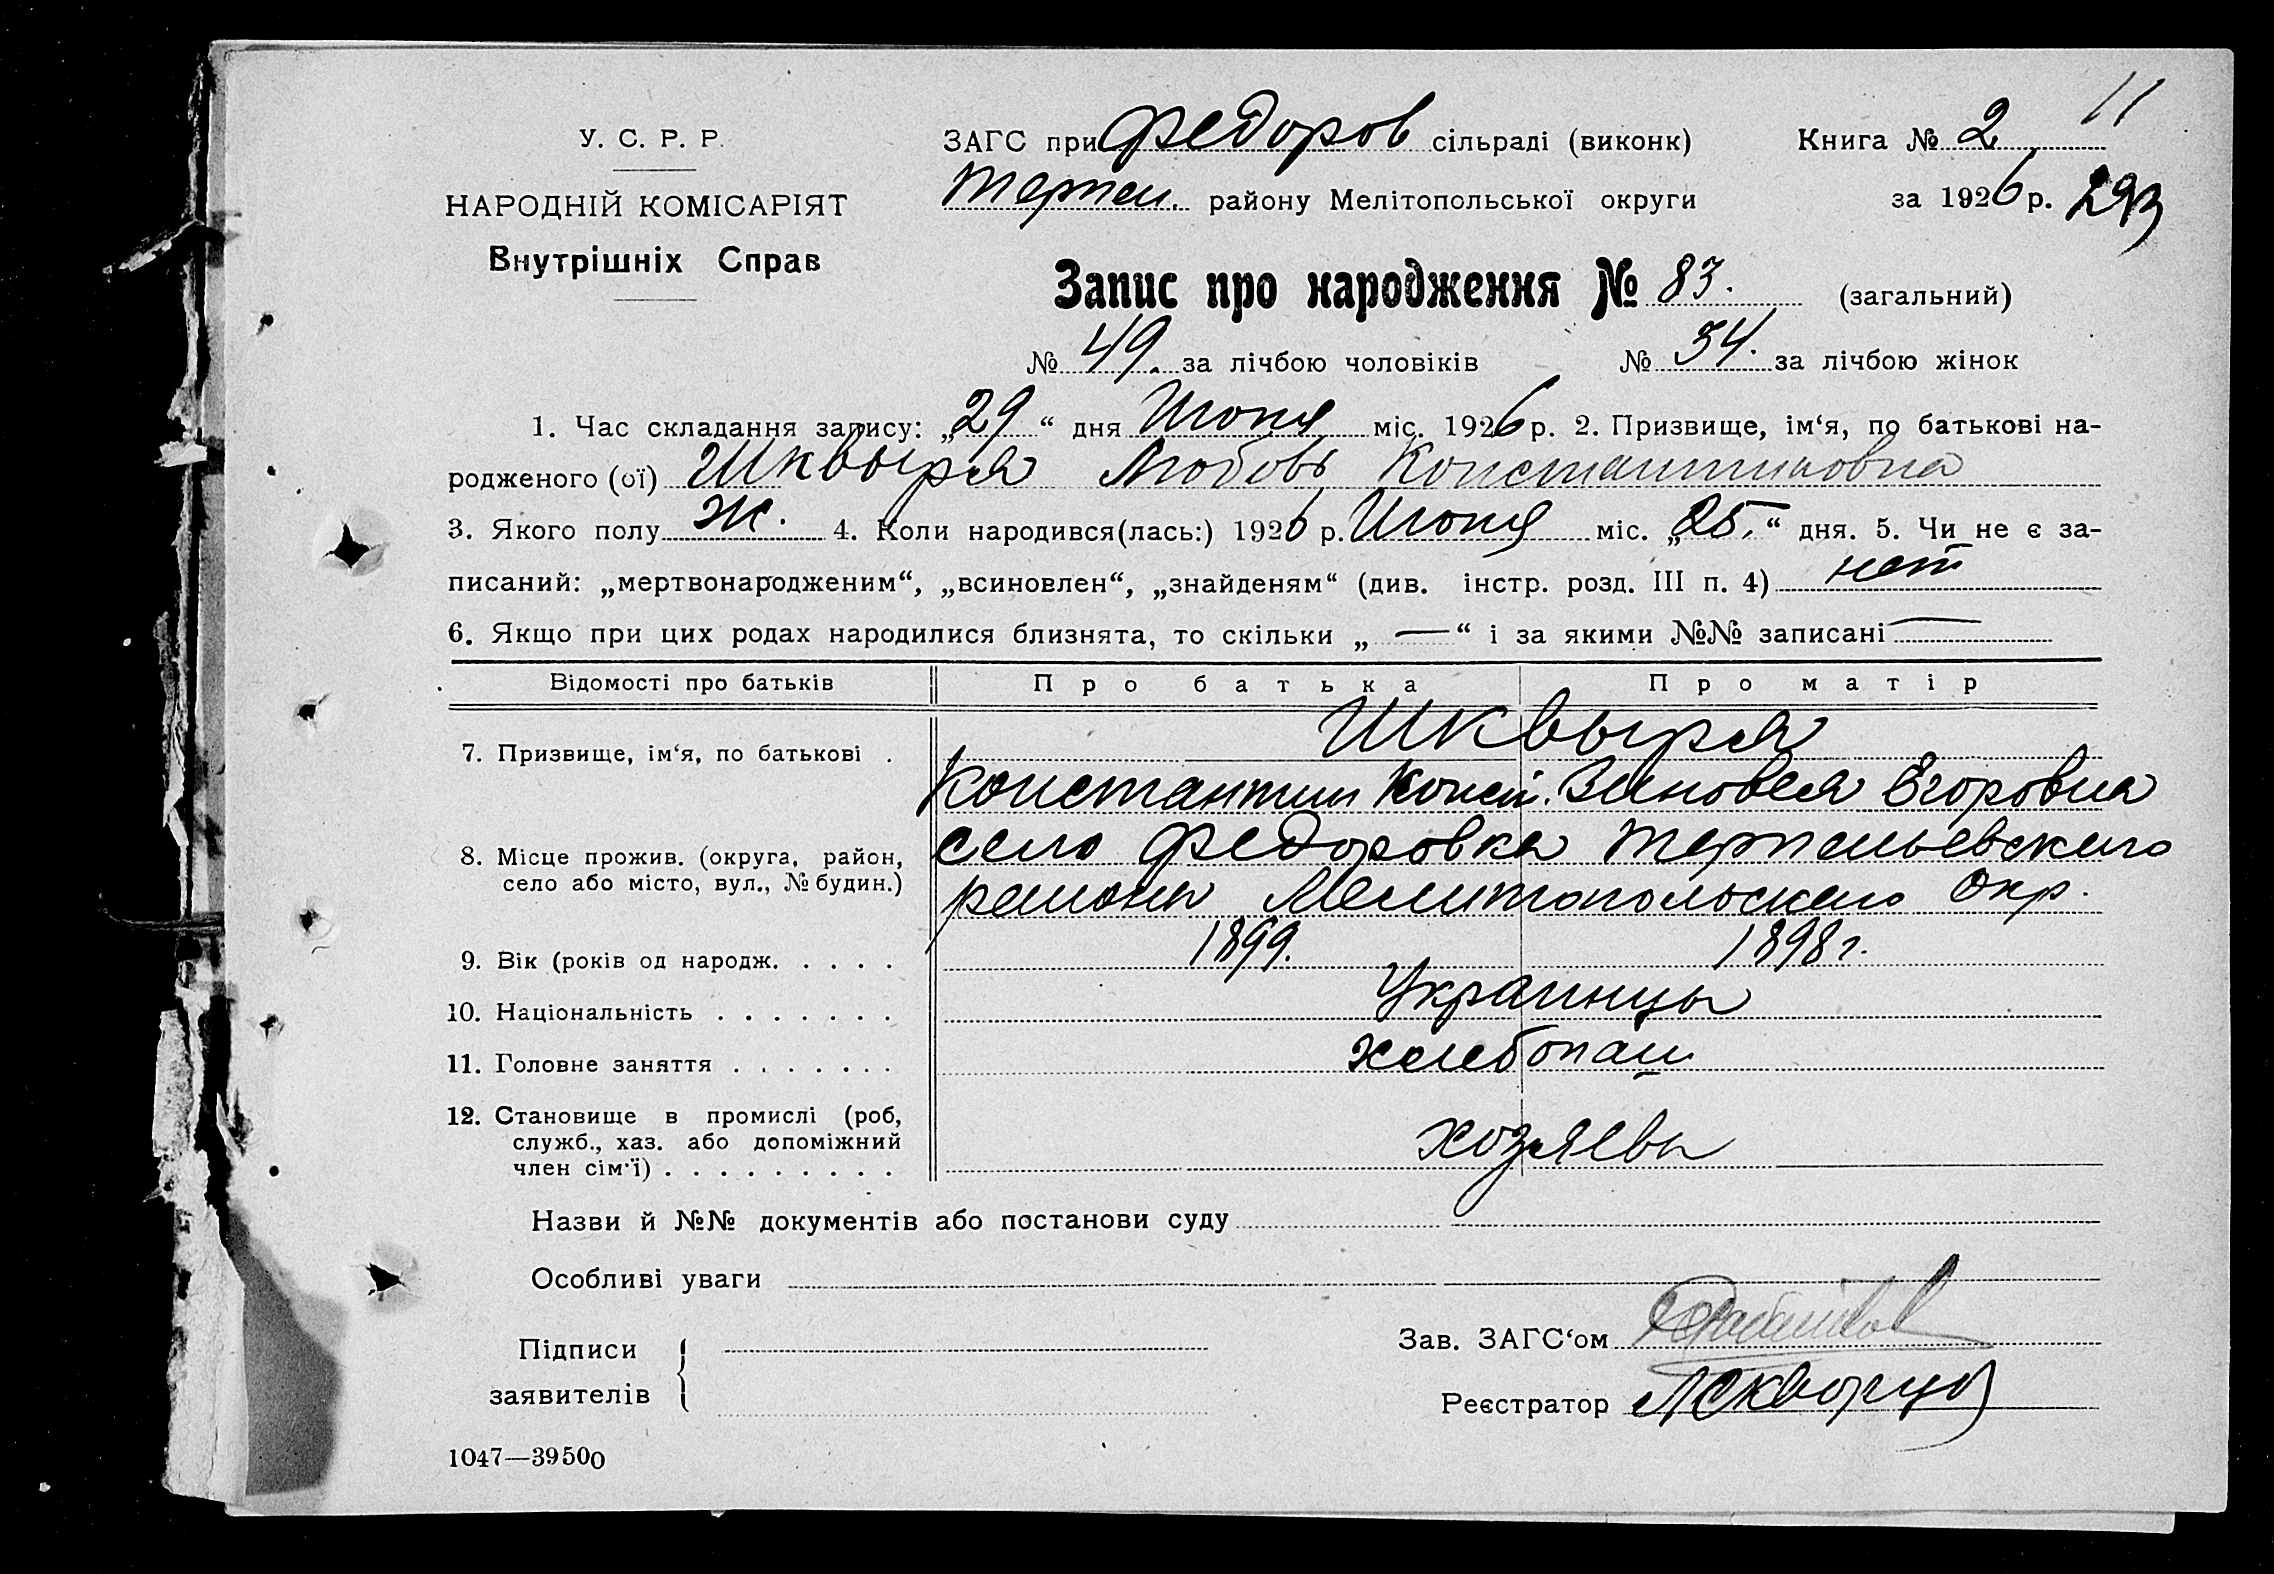 11
У. С. Р. Р. ЗАГС при Федоров сільраді (виконк) Книга № 2
НАРОДНІЙ КОМІСАРІЯТ Терпен. району Мелітопольської округи за 1926 р. 293
Внутрішніх Справ
Запис про народження № 83. (загальний)
№ 49. за лічбою чоловіків № 34. за лічбою жінок
1. Час складання запису: „29“ дня Июня міс. 1926 р. 2. Призвище, ім‘я, по батькові на-
родженого (ої) Шквыря Любовь Константиновна
3. Якого полу Ж. 4. Коли народився(лась:) 1926 р. Июня міс. „25.“ дня. 5. Чи не є за-
писаний: „мертвонародженим“, „всиновлен“, „знайденям“ (див. інстр. розд. III п. 4) нет
6. Якщо при цих родах народилися близнята, то скільки „ — “ і за якими №№ записані —
Відомості про батьків Про батька Про матір
7. Призвище, ім‘я, по батькові . Шквыря
Константин Конст. Зиновея Егоровна
8. Місце прожив. (округа, район, село Федоровка Терпеньевского
село або місто, вул., № будин.) района Мелитопольского Окр.
9. Вік (років од народж. . . . . 1899. 1898 г.
10. Національність . . . . . . . Украинцы
11. Головне заняття . . . . . . . хлебопаш
12. Становище в промислі (роб,
служб., хаз. або допоміжний хозяевы
член сім‘ї) . . . . . . . . .
Назви й №№ документів або постанови суду
Особливі уваги
Підписи Зав. ЗАГС‘ом
заявителів Реєстратор Скворцов
1047—39500